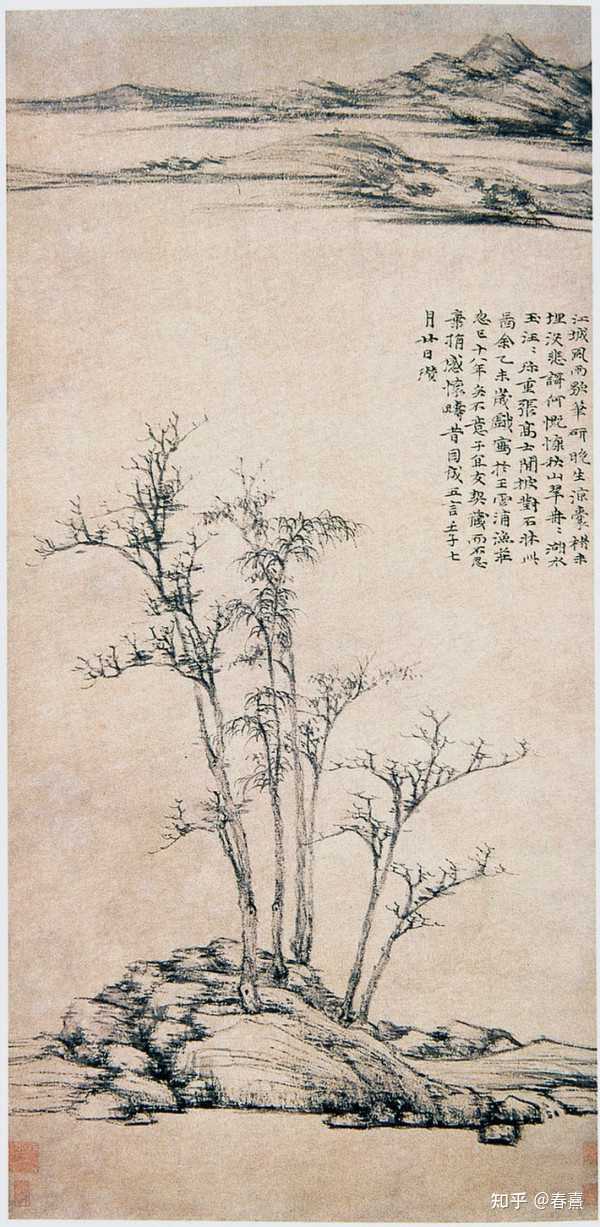 江城風雨歇筆研晚生涼囊楮未
埋没悲謌何慨慷秋山翠冉〻湖水
玉汪〻珍重張高士閒披對石牀此
圖余乙未歲戲寫於王雲浦漁莊
忽已十八年矣不意子宜友契藏而不忍
棄捐感懷疇昔因成五言壬子七
月廿日瓚
知乎 @春熹